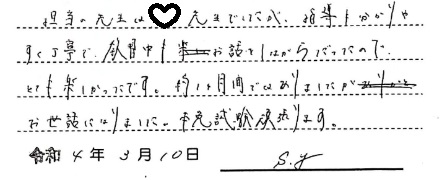 担当の先生は♥先生でしたが、指導も分かりや
すく丁寧で、教習中もお話をしながらだったので
とても楽しかったです。約1ヶ月間ではありましたが
お世話になりました。本免試験頑張ります。
令和4年3月10日 S.y